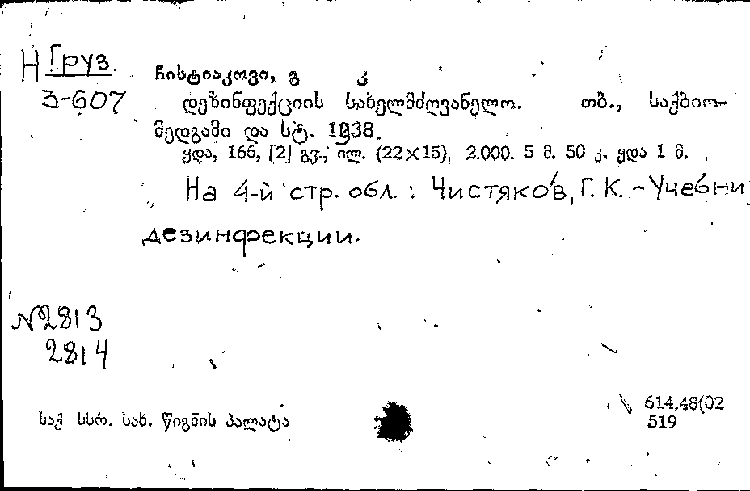 Н Груз.
3-607
ჩისტიაკოვი, გ კ
დეზინფექციის სახელმძღვანელო. თბ., საქმიო-
მედგამი და სტ. 1938.
ყდა, 166, [2] გვ., ილ. (22×15), 2.000. 5 მ. 50 კ. ყდა 1 მ.
На 4-й стр. обл.: Чистяков, Г. К. - Учебни
дезинфекции.
N2813
2814
საქ სსრ. სახ. წიგნის პალატა
614.48(02
519